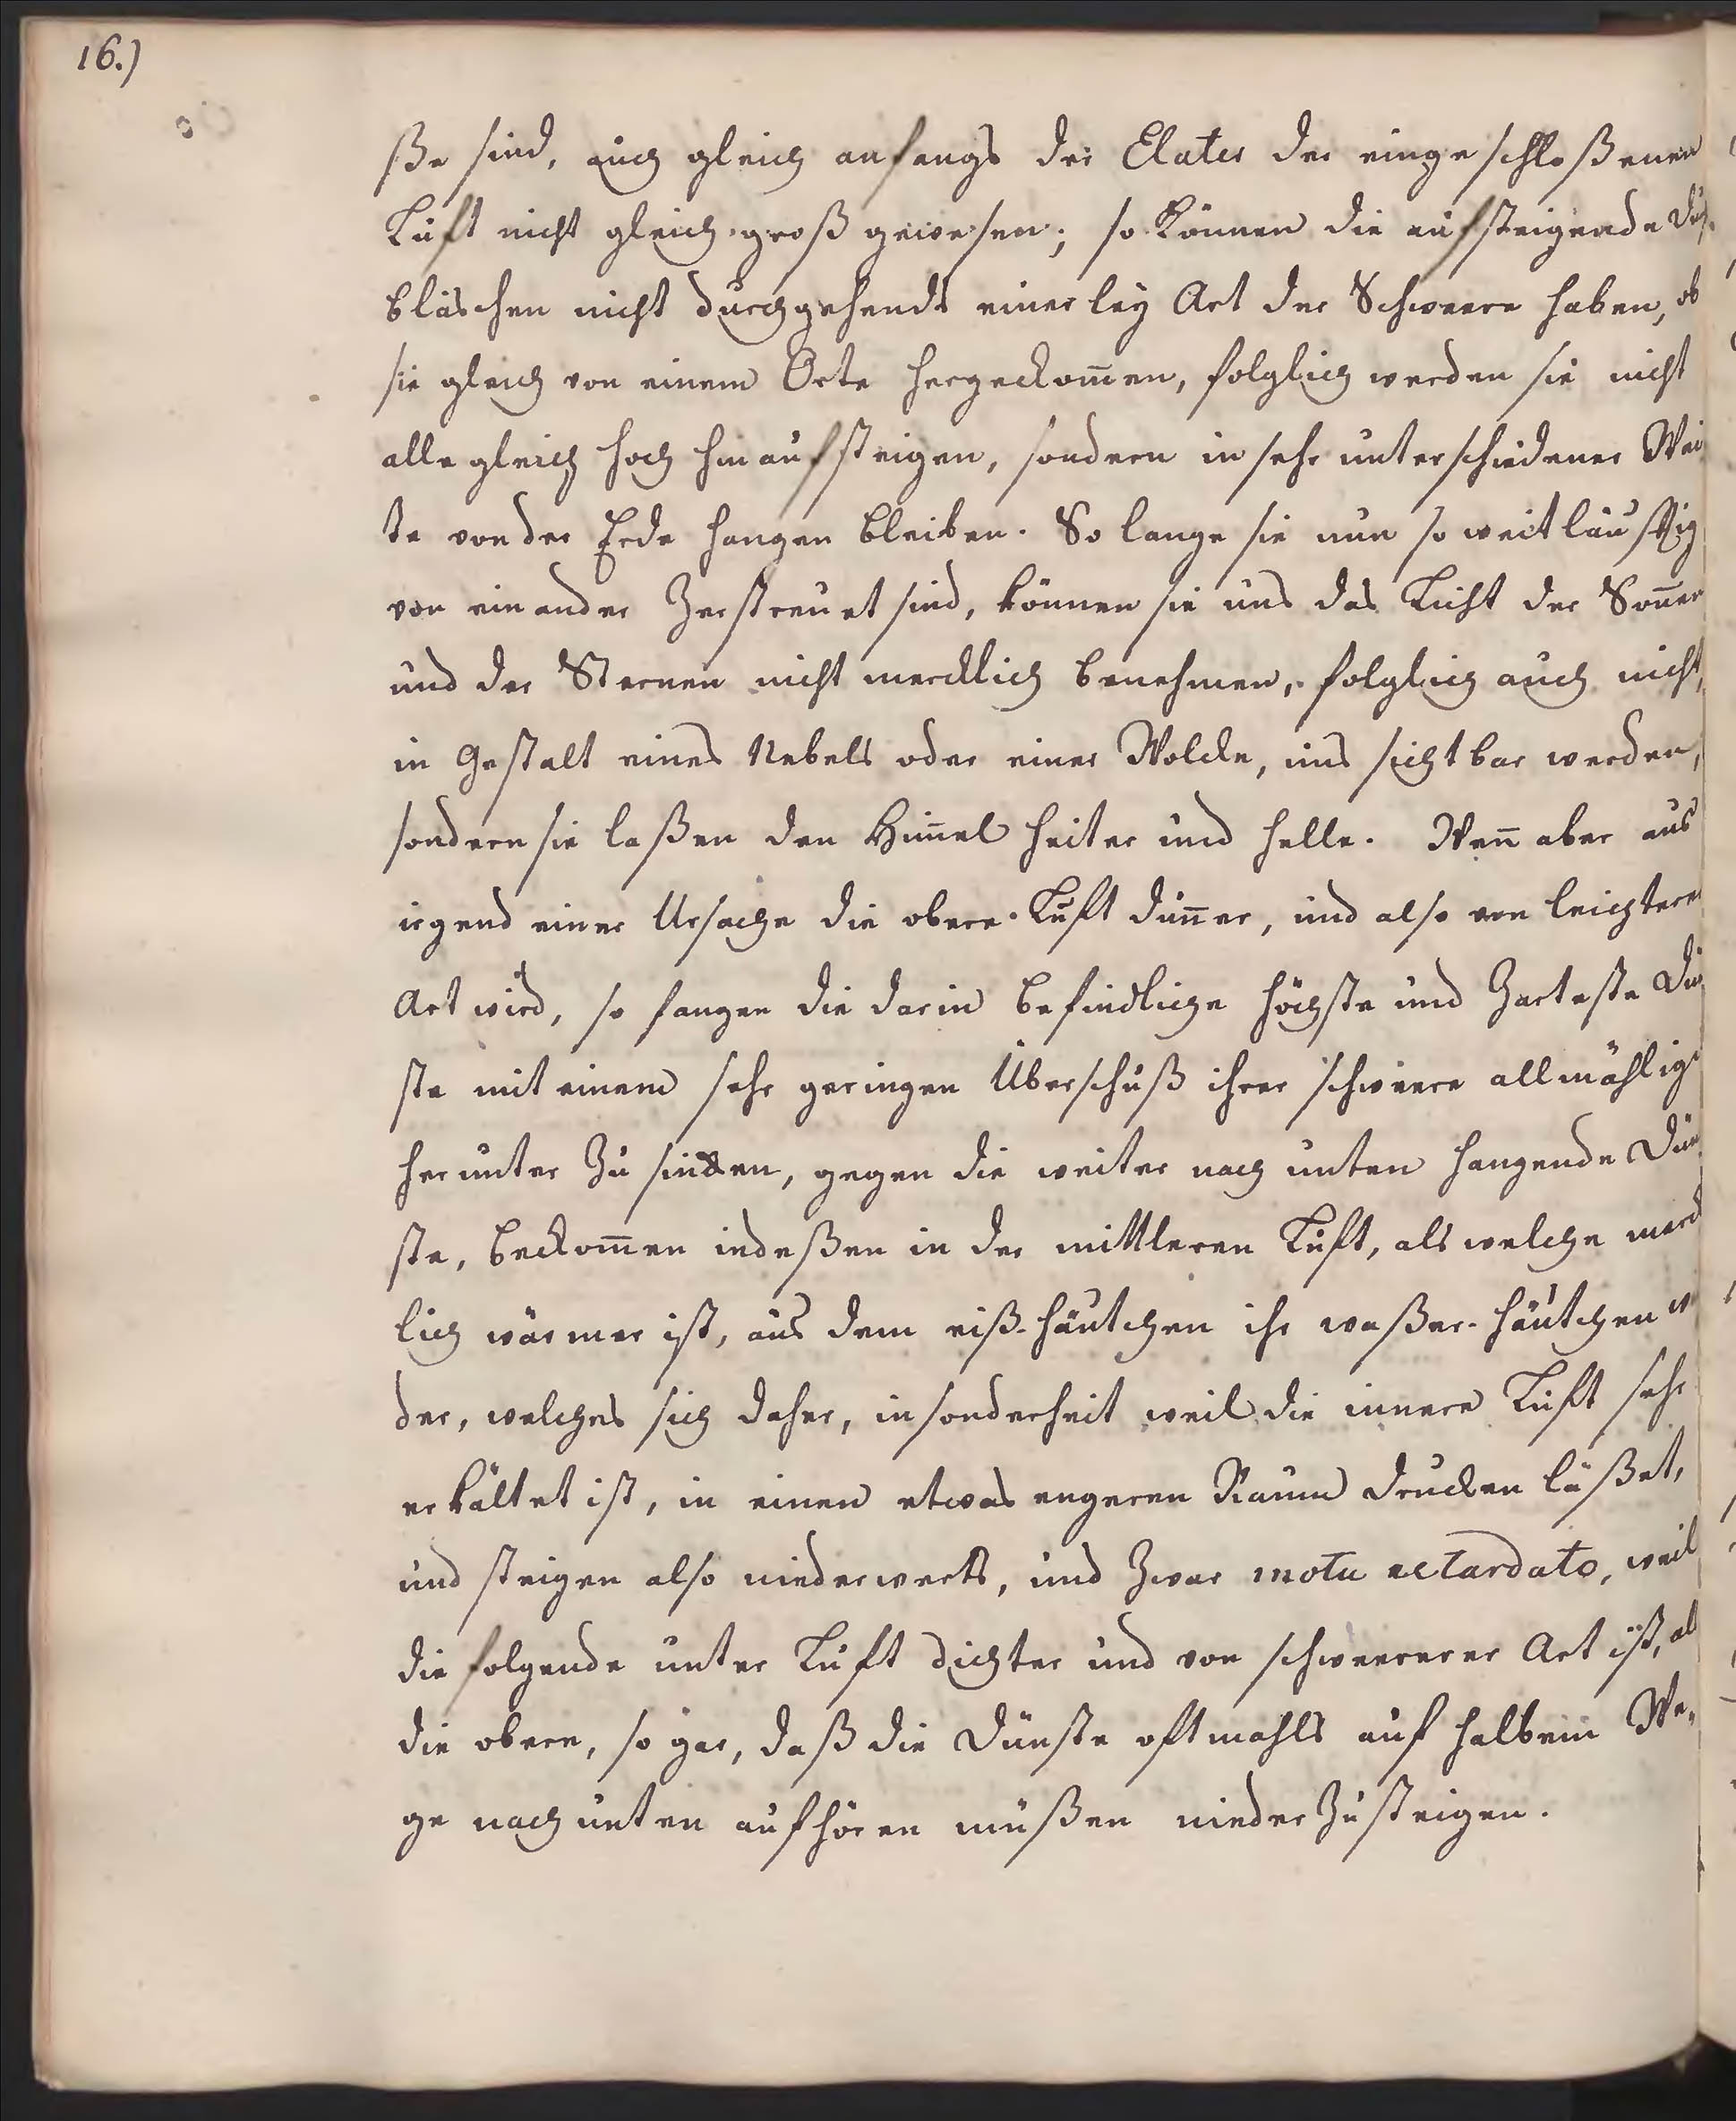 16.)
ße sind, auch gleich anfangs der Elater der eingeschloßenen
Luft nicht gleich groß gewesen; so können die aufsteigende
bläschen nicht durchgehends einerley Art der Schweere haben, ob
sie gleich von einem Orte hergeckom̄en, folglich werden sie nicht
alle gleich hoch hinaufsteigen, sondern in sehr unterschiedener Wei
te von der Erde hangen bleiben. So lange sie nun so weitläuftig
von einander Zerstreuet sind, können sie uns das Licht der Son̄en
und der Sternen nicht mercklich benehmen, folglich auch nicht,
in Gestalt eines Nebels oder einer Wolcke, uns sichtbar werden,
sondern sie laßen den Him̄el heiter und helle. Wen̄ aber aus
irgend einer Ursache die obere Luft dün̄er, und also von leichterer
Art wird, so fangen die darin befindliche höchste und Zarteste Dün
ste mit einem sehr geringen Überschuß ihrer schweere allmählig
herunter Zu sincken, gegen die weiter nach unten hangende Dün
ste, beckom̄en indeßen in der mittleren Luft, als welche merck
lich wärmer ist, aus dem eiß-häutchen ihr waßer-häutchen wie
der, welches sich daher, insonderheit weil die innere Luft sehr
erkältet ist, in einen etwas engeren Raum drucken läßet,
und steigen also niederwerts, und Zwar motu retardato, weil
die folgende unter Luft dichter und von schweererer Art ist, als
die obere, so gar, daß die Dünste oftmahls auf halbem We,
ge nach unten aufhören müßen nieder Zu steigen.